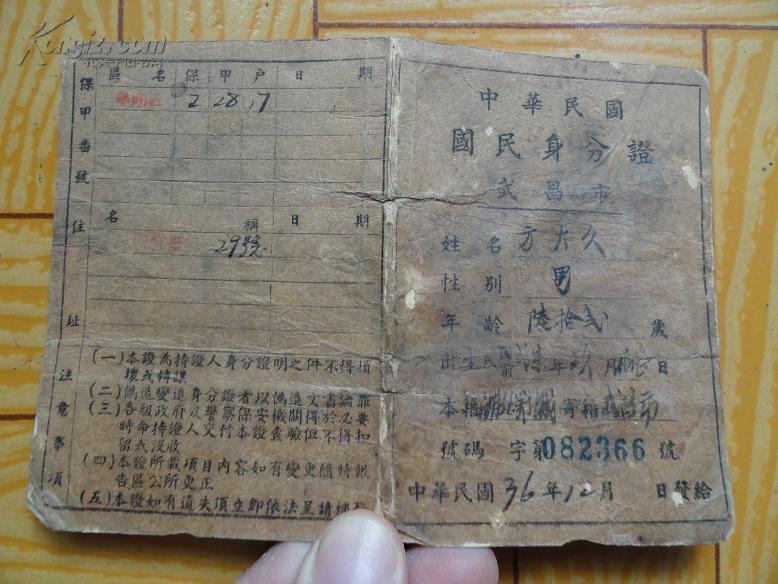 Kongfz.com
區名 保 甲 戶 日 期
2 28 17
保甲番號
名 稱 日 期
29號
住址
注意事項
(一)本證為持證人身分證明之件不得損
壞或轉讓
(二)偽造變造身分證者以偽造文書論罪
(三)各級政府及警察保安機關得於必要
時命持證人交付本證查驗但不得扣
留或沒收
(四)本證所載項目內容如有變更隨時報
告區公所更正
(五)本證如有遺失須立即依法呈請補發
中華民國
國民身分證
武昌市
姓名 方大久
性別 男
年齡 陸拾弍 歲
出生民 年 月 日
本籍 寄籍 武昌市
號碼 字第082366號
中華民國36年12月 日發給